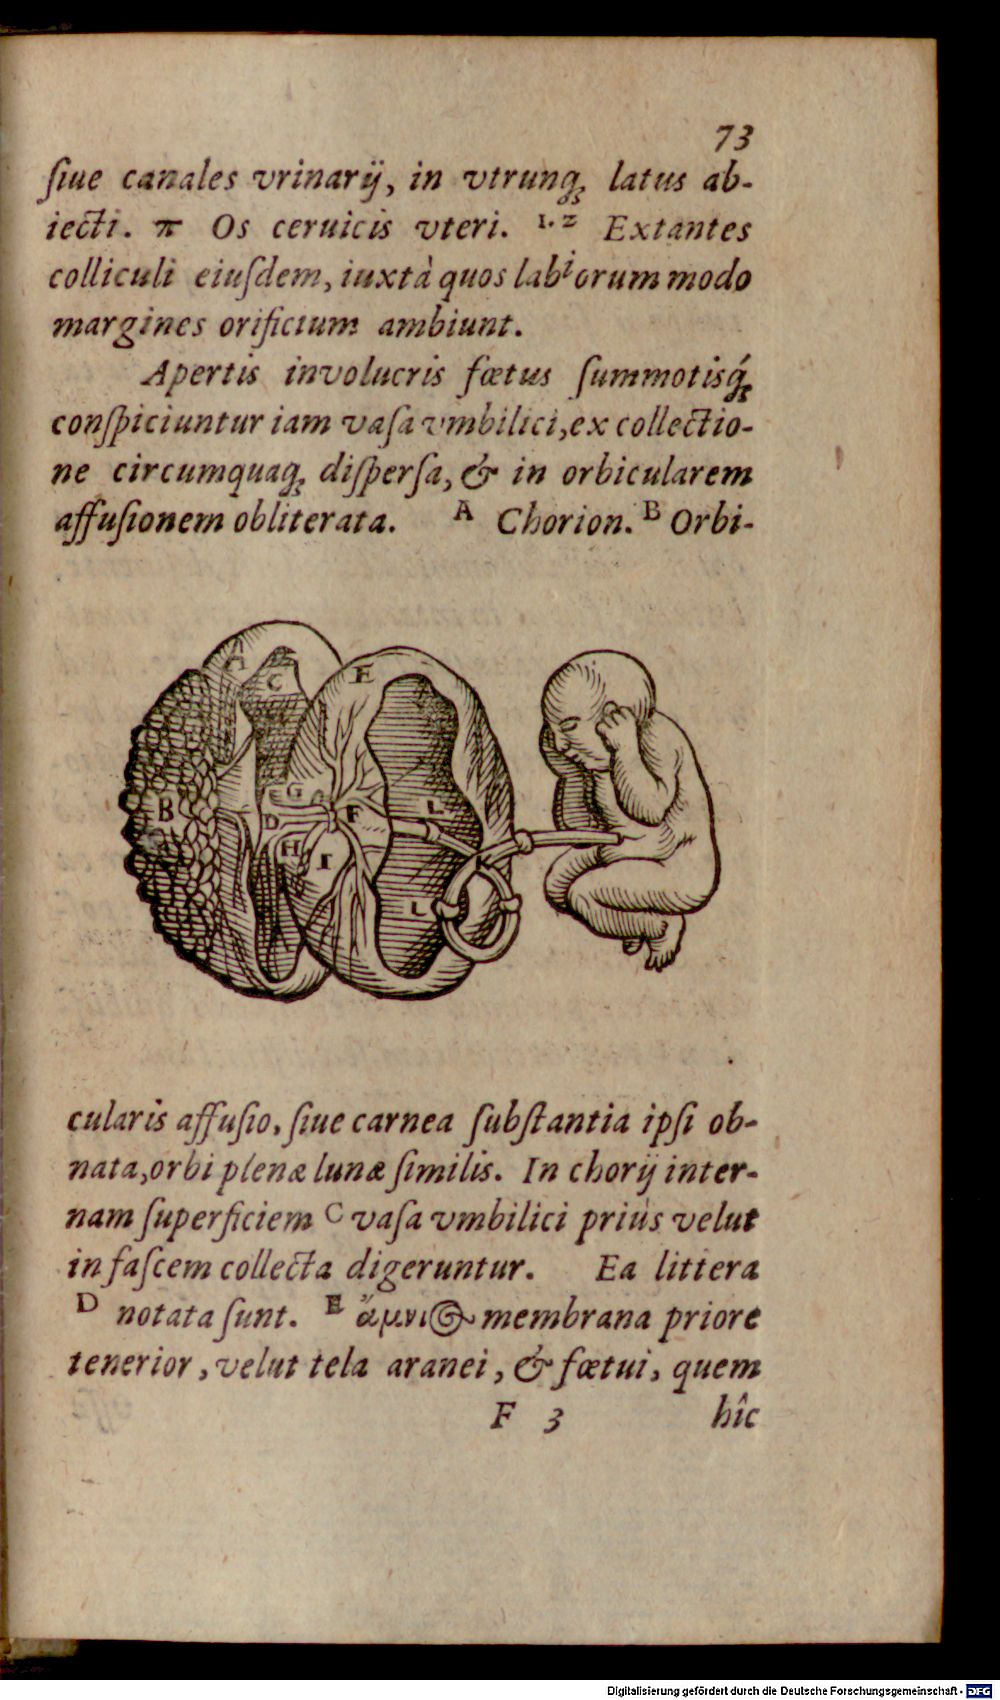 73
ſiue canales vrinarij, in vtrunq; latus ab-
iecti. π Os ceruicis vteri. 1. 2 Extantes
colliculi eiuſdem, iuxtà quos labiorum modo
margines orificium ambiunt.
Apertis involucris fœtus ſummotisq́;
conſpiciuntur iam vaſa vmbilici, ex collectio-
ne circumquaq; diſperſa, & in orbicularem
affuſionem obliterata. A Chorion. B Orbi-
A
C
E
B
G
D
F
L
H
I
K
L
cularis affuſio, ſiue carnea ſubſtantia ipſi ob-
nata, orbi plenæ lunæ ſimilis. In chorij inter-
nam ſuperficiem C vaſa vmbilici priùs velut
in faſcem collecta digeruntur. Ea littera
D notata ſunt. E ἄμνιος membrana priore
tenerior, velut tela aranei, & fœtui, quem
F 3 hîc
Digitalisierung gefördert durch die Deutsche Forschungsgemeinschaft - DFG